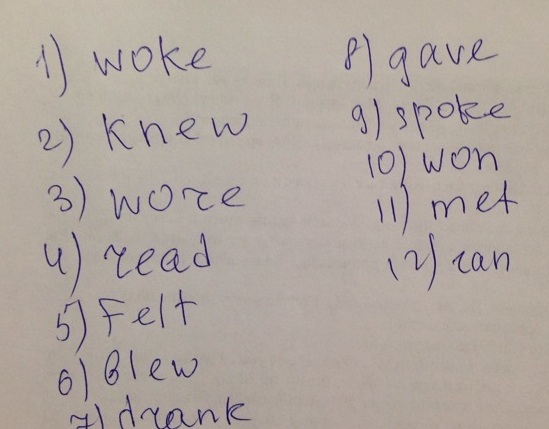 1) woke
2) knew
3) wore
4) read
5) Felt
6) Blew
7) drank
8) gave
9) spoke
10) won
11) met
12) ran